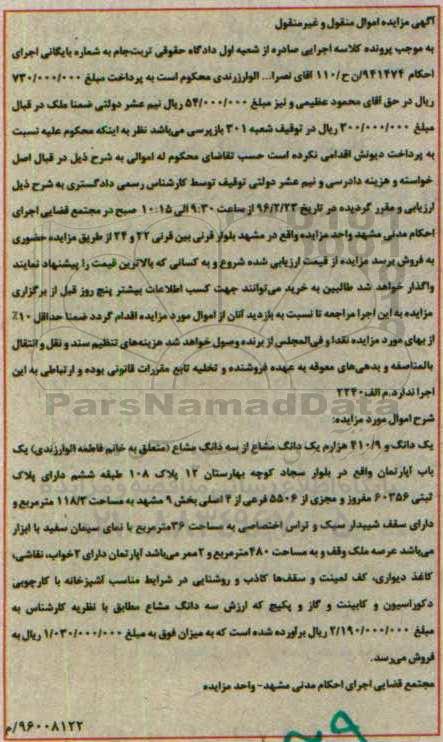 آگهی مزایده اموال منقول و غیرمنقول
به موجب پرونده کلاسه اجرایی صادره از شعبه اول دادگاه حقوقی تربت‌جام به شماره بایگانی اجرای
احکام ۹۴۱۴۷۴/ن ح/۱۱۰ آقای نصرا... الوارزرندی محکوم است به پرداخت مبلغ ۷۳۰/۰۰۰/۰۰۰
ریال در حق آقای محمود عظیمی و نیز مبلغ ۵۴/۰۰۰/۰۰۰ ریال نیم عشر دولتی ضمنا ملک در قبال
مبلغ ۳۰۰/۰۰۰/۰۰۰ ریال در توقیف شعبه ۳۰۱ بازپرسی می‌باشد نظر به اینکه محکوم علیه نسبت
به پرداخت دیونش اقدامی نکرده است حسب تقاضای محکوم له اموالی به شرح ذیل در قبال اصل
خواسته و هزینه دادرسی و نیم عشر دولتی توقیف توسط کارشناس رسمی دادگستری به شرح ذیل
ارزیابی و مقرر گردیده در تاریخ ۹۶/۲/۲۳ از ساعت ۹:۳۰ الی ۱۰:۱۵ صبح در مجتمع قضایی اجرای
احکام مدنی مشهد واحد مزایده واقع در مشهد بلوار قرنی بین قرنی ۲۲ و ۲۴ از طریق مزایده حضوری
به فروش برسد مزایده از قیمت ارزیابی شده شروع و به کسانی که بالاترین قیمت را پیشنهاد نمایند
واگذار خواهد شد طالبین به خرید می‌توانند جهت کسب اطلاعات بیشتر پنج روز قبل از برگزاری
مزایده به این اجرا مراجعه تا نسبت به بازدید آنان از اموال مورد مزایده اقدام گردد ضمنا حداقل ۱۰٪
از بهای مورد مزایده نقدا و فی‌المجلس از برنده وصول خواهد شد هزینه‌های تنظیم سند و نقل و انتقال
بالمناصفه و بدهی‌های معوقه به عهده فروشنده و تخلیه تابع مقررات قانونی بوده و ارتباطی به این
اجرا ندارد.م الف۲۲۴۰
ParsNamadData
شرح اموال مورد مزایده:
یک دانگ و ۴۱۰/۹ هزارم یک دانگ مشاع از سه دانگ مشاع (متعلق به خانم فاطمه الوارزندی) یک
باب آپارتمان واقع در بلوار سجاد کوچه بهارستان ۱۲ پلاک ۱۰۸ طبقه ششم دارای پلاک
ثبتی ۶۰۳۵۶ مفروز و مجزی از ۵۵۰۶ فرعی از ۴ اصلی بخش ۹ مشهد به مساحت ۱۱۸/۳ مترمربع و
دارای سقف شیبدار سبک و تراس اختصاصی به مساحت ۳۶مترمربع با نمای سیمان سفید با ابزار
می‌باشد عرصه ملک وقف و به مساحت ۴۸۰مترمربع و ۲ممر می‌باشد آپارتمان دارای ۲خواب، نقاشی،
کاغذ دیواری، کف لمینت و سقف‌ها کاذب و روشنایی در شرایط مناسب آشپزخانه با کارچوبی
دکوراسیون و کابینت و گاز و پکیج که ارزش سه دانگ مشاع مطابق با نظریه کارشناس به
مبلغ ۲/۱۹۰/۰۰۰/۰۰۰ ریال برآورده شده است که به میزان فوق به مبلغ ۱/۰۳۰/۰۰۰/۰۰۰ ریال به
فروش می‌رسد.
مجتمع قضایی اجرای احکام مدنی مشهد- واحد مزایده
۹۶۰۰۸۱۲۲/م